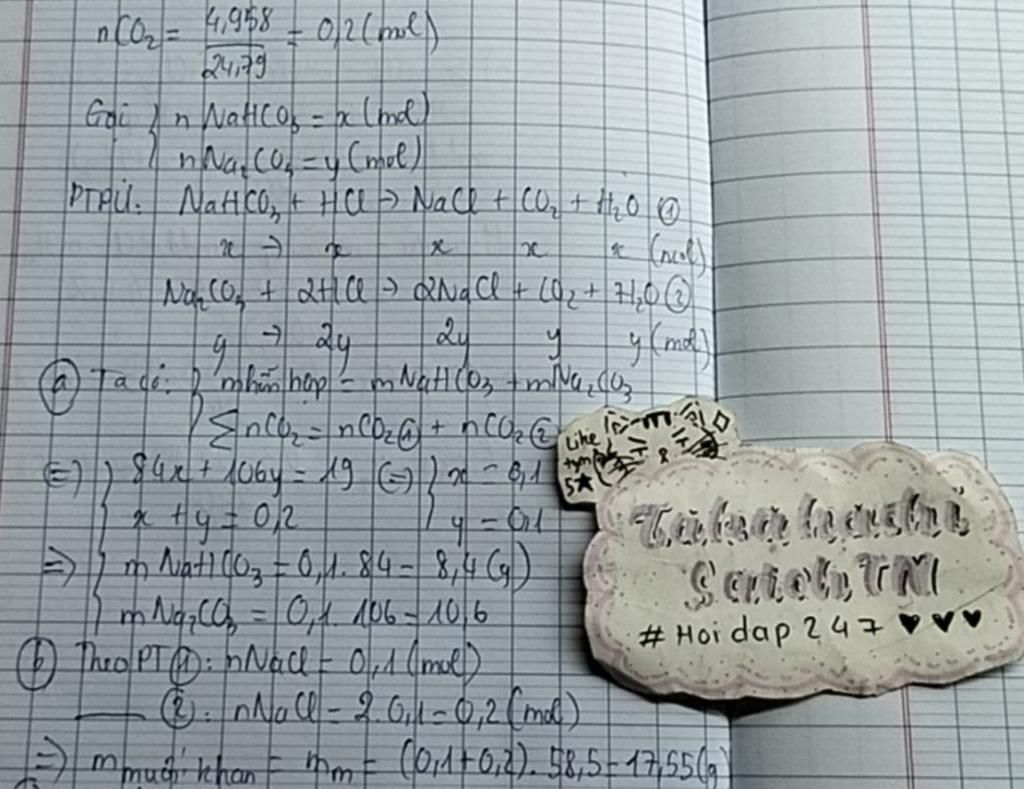 nCO₂ = 4,958/24,79 = 0,2 (mol)
Gọi { nNaHCO₃ = x (mol)
nNa₂CO₃ = y (mol)
PTPƯ: NaHCO₃ + HCl → NaCl + CO₂ + H₂O ①
x → x x x x (mol)
Na₂CO₃ + 2HCl → 2NaCl + CO₂ + H₂O ②
y → 2y 2y y y (mol)
ⓐ Ta có: { m hỗn hợp = mNaHCO₃ + mNa₂CO₃
∑nCO₂ = nCO₂① + nCO₂②
(=) { 84x + 106y = 19 (=) { x = 0,1
x + y = 0,2 y = 0,1
=> { mNaHCO₃ = 0,1.84 = 8,4 (g)
mNa₂CO₃ = 0,1.106 = 10,6
ⓑ Theo PT ①: nNaCl = 0,1 (mol)
—— ②: nNaCl = 2.0,1 = 0,2 (mol)
=> m muối khan = mm = (0,1+0,2).58,5 = 17,55 (g)
Like
tym
5★
#Hoidap247 ♥♥♥